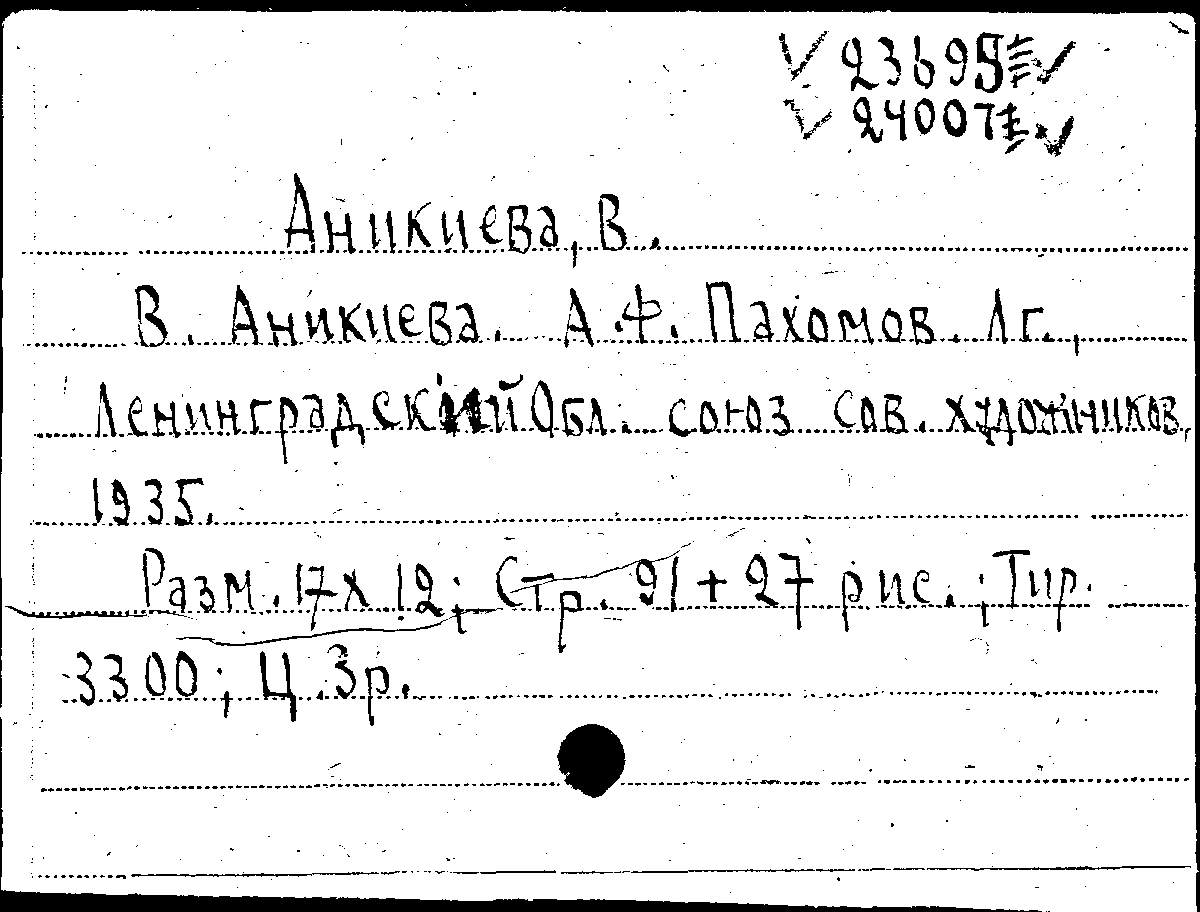 ✓ 23695 ✓
✓ 24007 ✓
Аникиева, В.
В. Аникиева. А.Ф. Пахомов. Лг.,
Ленинградский Обл. союз сов. художников,
1935.
Разм. 17х12; Стр. 91+27 рис.; Тир.
3300; Ц. 3р.